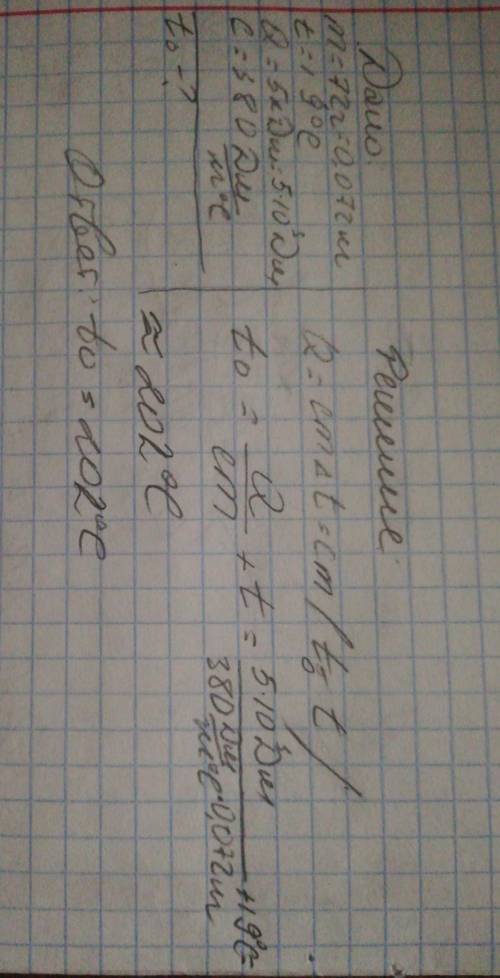 Дано:
m=72г=0,072кг
t=19°C
Q=5кДж=5·10³Дж
C=380 Дж/кг°C
t₀-?
Решение:
Q=cmΔt=cm/t₀-t/
t₀ = Q/cm + t = 5·10³Дж / 380 Дж/кг°C·0,072кг +19°C
≈ 202°C
Ответ: t₀ = 202°C